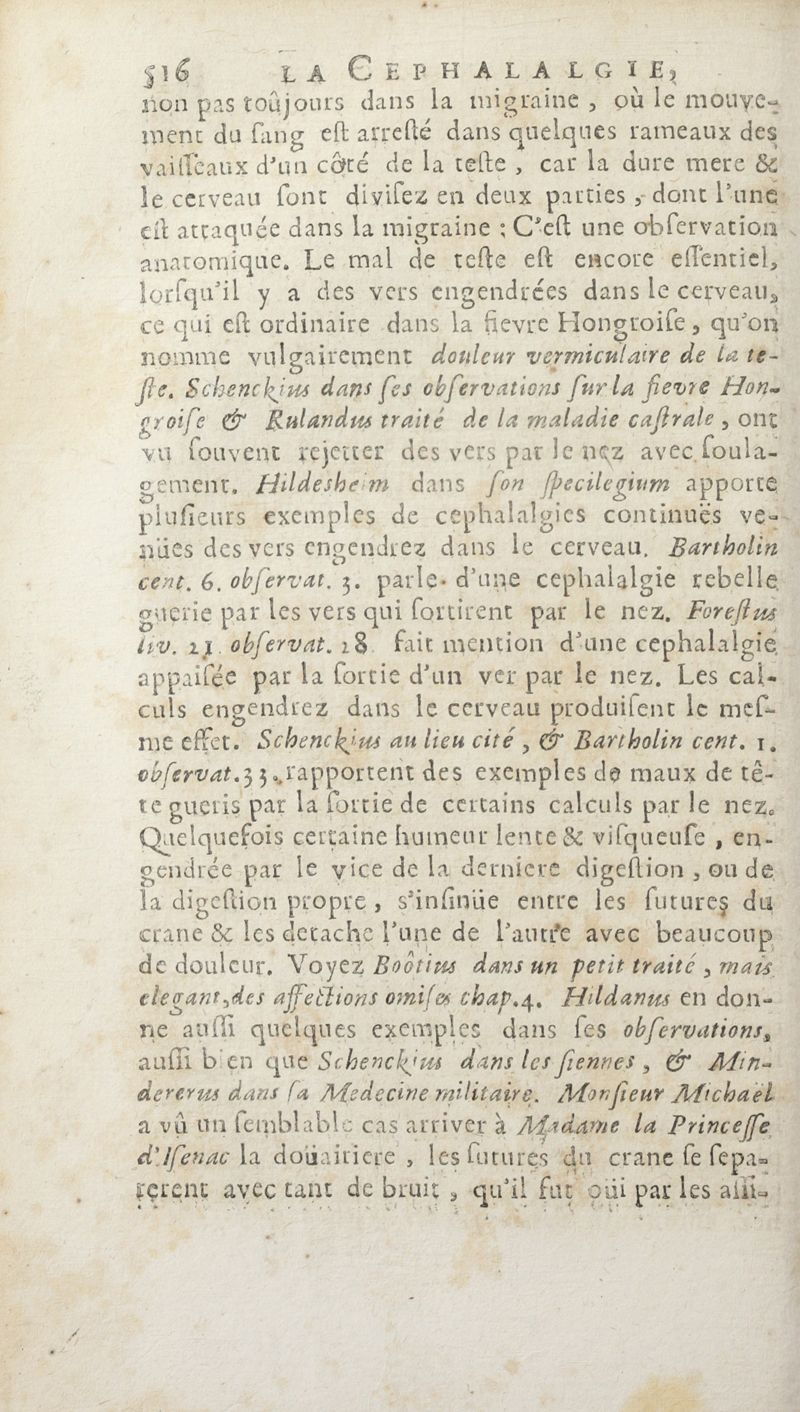 516 LA CEPHALALGIE,
non pas toûjours dans la migraine, où le mouve-
ment du sang est arresté dans quelques rameaux des
vaisseaux d'un côté de la teste, car la dure mere &
le cerveau sont divisez en deux parties, dont l'une
est attaquée dans la migraine ; C'est une observation
anatomique. Le mal de teste est encore essentiel,
lorsqu'il y a des vers engendrées dans le cerveau,
ce qui est ordinaire dans la fievre Hongroise, qu'on
nomme vulgairement douleur vermiculaire de la te-
ste. Schenckjus dans ses observations sur la fievre Hon-
groise & Rulandus traité de la maladie castrale, ont
vu souvent rejetter des vers par le nez avec soula-
gement. Hildesheim dans son specilegium apporte
plusieurs exemples de cephalalgies continuës ve-
nües des vers engendrez dans le cerveau. Bartholin
cent. 6. observat. 3. parle d'une cephalalgie rebelle
guerie par les vers qui sortirent par le nez. Forestus
liv. 21. observat. 28 fait mention d'une cephalalgie
appaisée par la sortie d'un ver par le nez. Les cal-
culs engendrez dans le cerveau produisent le mes-
me effet. Schenckjus au lieu cité, & Bartholin cent. 1.
observat. 33. rapportent des exemples de maux de tê-
te gueris par la sortie de certains calculs par le nez.
Quelquefois certaine humeur lente & visqueuse, en-
gendrée par le vice de la derniere digestion, ou de
la digestion propre, s'insinüe entre les futures du
crane & les detache l'une de l'autre avec beaucoup
de douleur. Voyez Boôtius dans un petit traité, mais
elegant, des affections omises chap. 4. Hildanus en don-
ne aussi quelques exemples dans ses observations,
aussi bien que Schenckjus dans les siennes, & Min-
dererus dans sa Medecine militaire. Monsieur Michaël
a vû un semblable cas arriver à Madame la Princesse
d'Isenac la doüairiere, les futures du crane se sepa-
rerent avec tant de bruit, qu'il fut oüi par les assi-